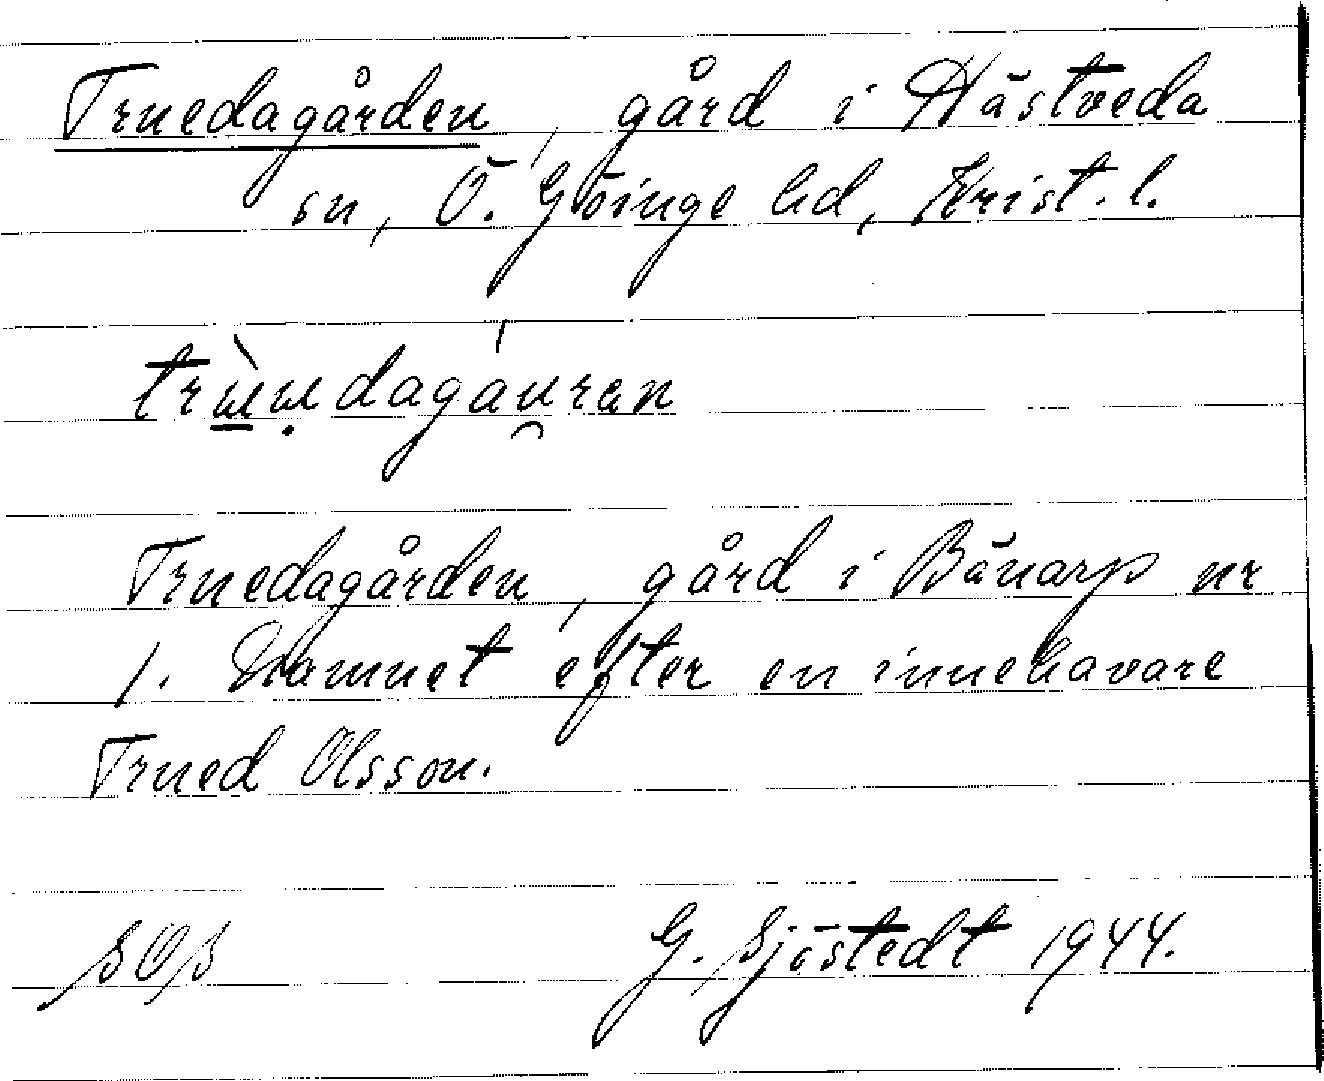 Truedagården, gård i Hästveda
sn, Ö. Göinge hd, Krist. l.
Truedagården, gård i Bänarp nr
1. Namnet efter en innehavare
Trued Olsson.
SOS G. Sjöstedt 1944.